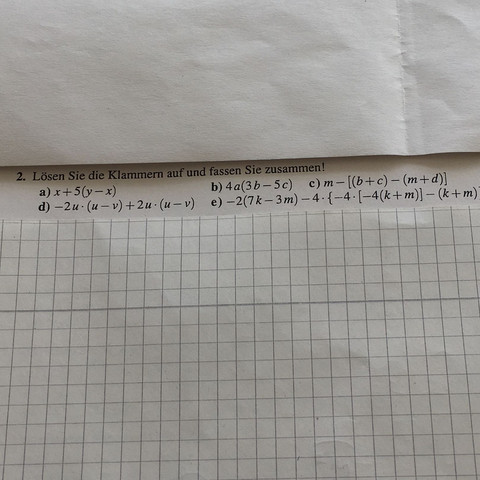 2. Lösen Sie die Klammern auf und fassen Sie zusammen!
a) x+5(y−x) b) 4a(3b−5c) c) m−[(b+c)−(m+d)]
d) −2u·(u−v)+2u·(u−v) e) −2(7k−3m)−4·{−4·[−4(k+m)]−(k+m)